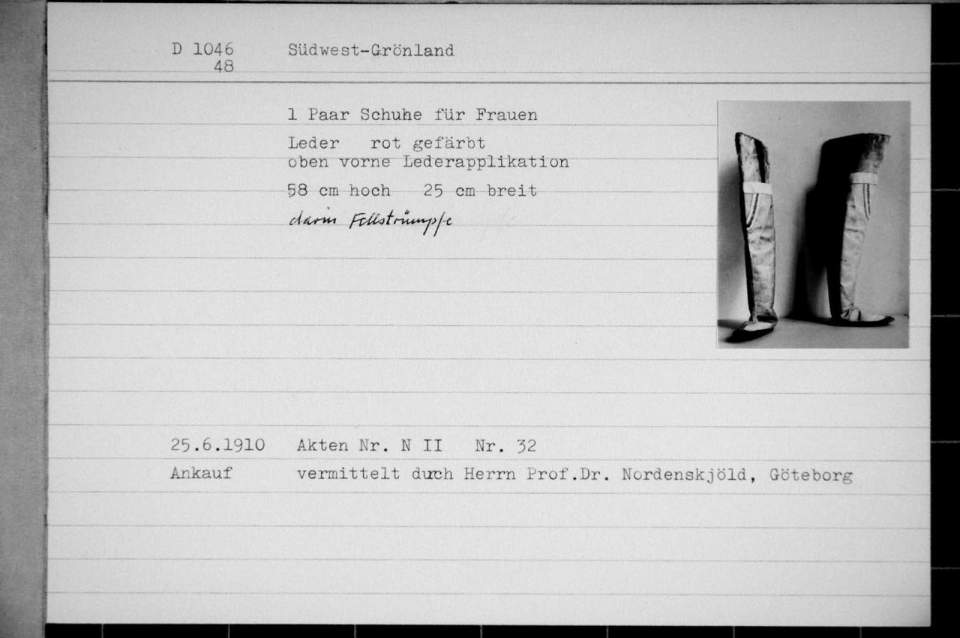 D 1046 Südwest-Grönland
48
1 Paar Schuhe für Frauen
Leder rot gefärbt
oben vorne Lederapplikation
58 cm hoch 25 cm breit
darin Fellstrümpfe
25.6.1910 Akten Nr. N II Nr. 32
Ankauf vermittelt durch Herrn Prof.Dr. Nordenskjöld, Göteborg